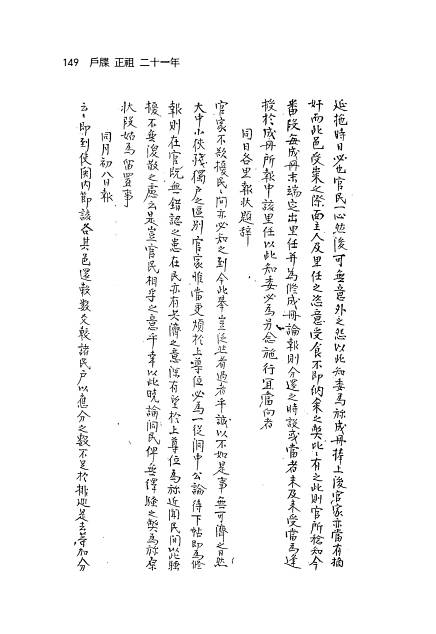 149 戶牒 正祖 二十一年
延拖時日必也官民一心然後可無意外之怨以此知委爲㫆成冊捧上後官家亦當有摘
奸而此邑受糶之際面主人及里任之恣意受食不即納來之獘比比有之此則官所稔知今
番段每成冊末端定出里任并爲修成冊論報則分還之時設或當者未及來受當爲逢
授於成冊所報中該里任以此知委必爲另念施行宜當向者
同日各里報狀題辭
官家不欲擾民間亦必知之到今此擧豈徒然者過者乎誠以不如是事無可濟之日然
大中小伕殘獨戶之區別官家雖當更煩於上尊位必爲一從洞中公論待下帖即爲修
報則在官既無錯認之患在民亦有共濟之意深有望於上尊位爲㫆近聞民間以此騷
擾不無復散之慮云是豈官民相孚之意乎幸以此曉諭洞民俾無繹騷之獘爲㫆原
狀段姑爲留置事
同月初八日報
云云即到使關內節該各其邑還穀數爻較諸民戶以應分之數不足於排巡是去等加分